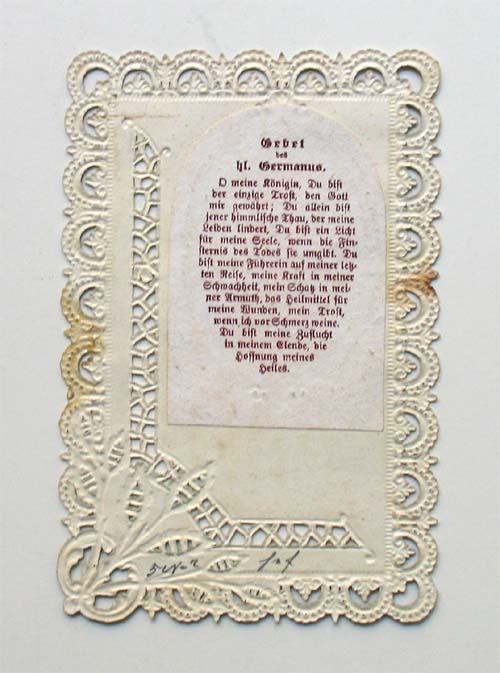 Gebet
des
hl. Germanus.
O meine Königin, Du bist
der einzige Trost, den Gott
mir gewährt; Du allein bist
jener himmlische Thau, der meine
Leiden lindert, Du bist ein Licht
für meine Seele, wenn die Fin-
sternis des Todes sie umgibt. Du
bist meine Führerin auf meiner letz-
ten Reise, meine Kraft in meiner
Schwachheit, mein Schatz in mei-
ner Armuth, das Heilmittel für
meine Wunden, mein Trost,
wenn ich vor Schmerz weine.
Du bist meine Zuflucht
in meinem Elende, die
Hoffnung meines
Heiles.